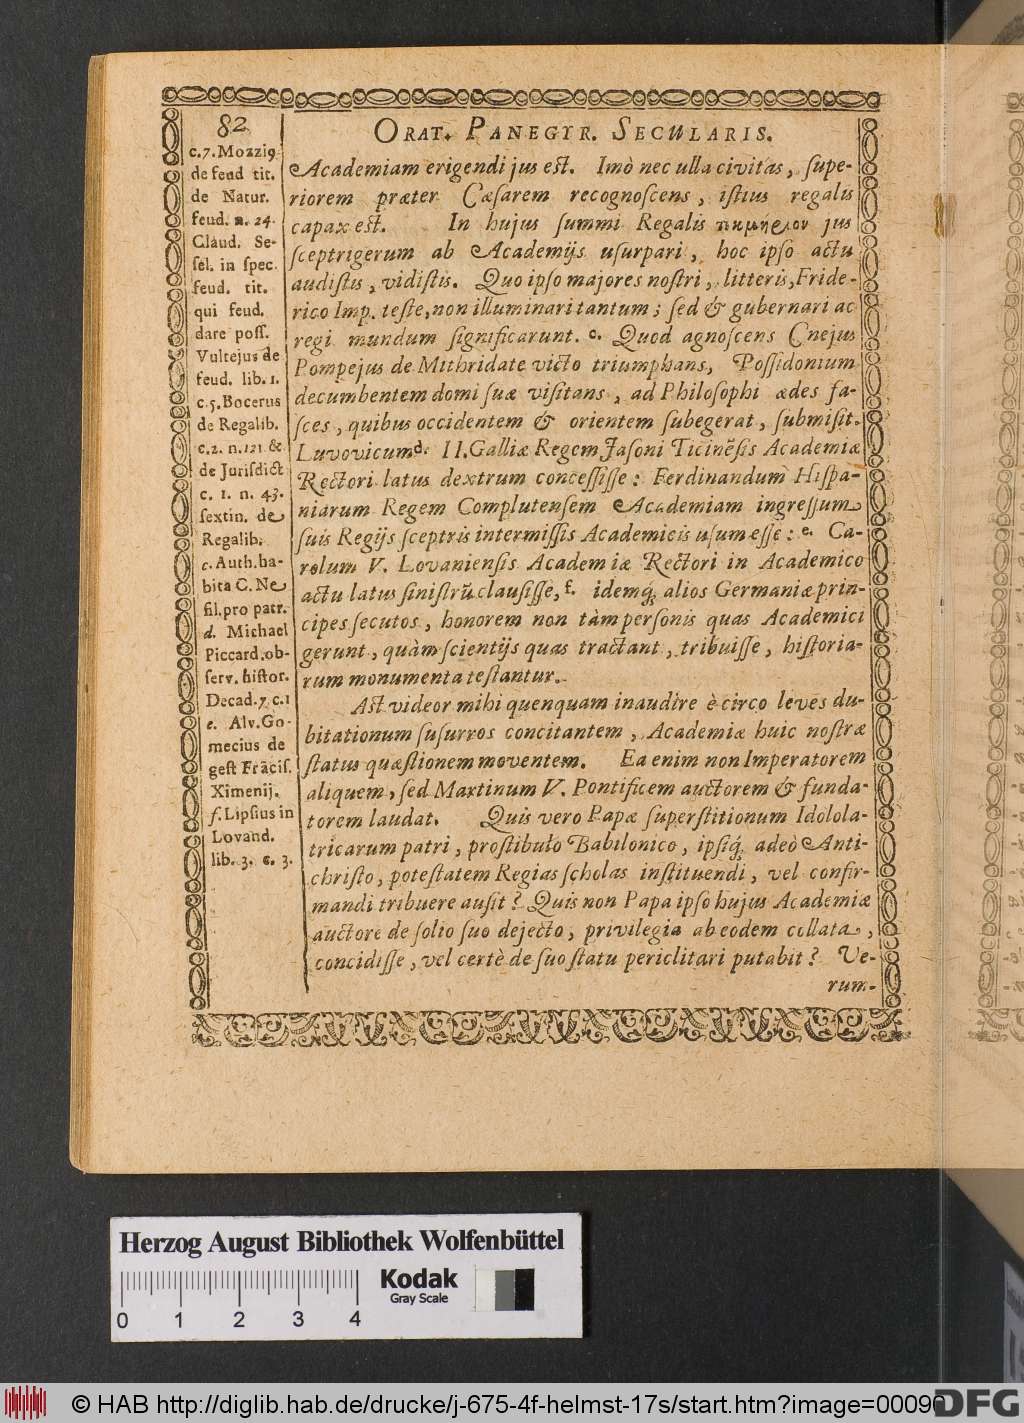 82
ORAT. PANEGYR. SECULARIS.
c.7. Mozzig
de feud tit.
de Natur.
feud. n. 24.
Claud. Se-
sel. in spec.
feud. tit.
qui feud.
dare poss.
Vultejus de
feud. lib. 1.
c. 5. Bocerus
de Regalib.
c. 2. n. 121 &
de Jurisdict
c. 1. n. 43.
sextin. de
Regalib.
c. Auth. ha-
bita C. Ne
fil. pro patr.
d. Michael
Piccard. ob-
serv. histor.
Decad. 7. c. 1
e. Alv. Go-
mecius de
gest Frãcis.
Ximenij.
f. Lipsius in
Lovand.
lib. 3. c. 3.
Academiam erigendi jus est. Imò nec ulla civitas, supe-
riorem præter Cæsarem recognoscens, istius regalis
capax est. In hujus summi Regalis jus
sceptrigerum ab Academijs usurpari, hoc ipso actu
audistis, vidistis. Quo ipso majores nostri, litteris, Fride-
rico Imp. teste, non illuminari tantum; sed & gubernari ac
regi mundum significarunt. c. Quod agnoscens Cnejus
Pompejus de Mithridate victo triumphans, Possidonium
decumbentem domi suæ visitans, ad Philosophi ædes fa-
sces, quibus occidentem & orientem subegerat, submisit.
Luvovicum d. II. Galliæ Regem Jasoni Ticinẽsis Academiæ
Rectori latus dextrum concessisse: Ferdinandum Hispa-
niarum Regem Complutensem Academiam ingressum
suis Regijs sceptris intermissis Academicis usum esse: e. Ca-
rolum V. Lovaniensis Academiæ Rectori in Academico
actu latus sinistrũ clausisse, f. idemq́; alios Germaniæ prin-
cipes secutos, honorem non tàm personis quas Academici
gerunt, quàm scientijs quas tractant, tribuisse, historia-
rum monumenta testantur.
Ast videor mihi quenquam inaudire è circo leves du-
bitationum susurros concitantem, Academiæ huic nostræ
status quæstionem moventem. Ea enim non Imperatorem
aliquem, sed Martinum V. Pontificem auctorem & funda-
torem laudat. Quis vero Papæ superstitionum Idolola-
tricarum patri, prostibulo Babilonico, ipsiq́; adeò Anti-
christo, potestatem Regias scholas instituendi, vel confir-
mandi tribuere ausit? Quis non Papa ipso hujus Academiæ
auctore de solio suo dejecto, privilegia ab eodem collata,
concidisse, vel certè de suo statu periclitari putabit? Ve-
rum-
Herzog August Bibliothek Wolfenbüttel
Kodak
Gray Scale
0 1 2 3 4
© HAB http://diglib.hab.de/drucke/j-675-4f-helmst-17s/start.htm?image=00090
DFG